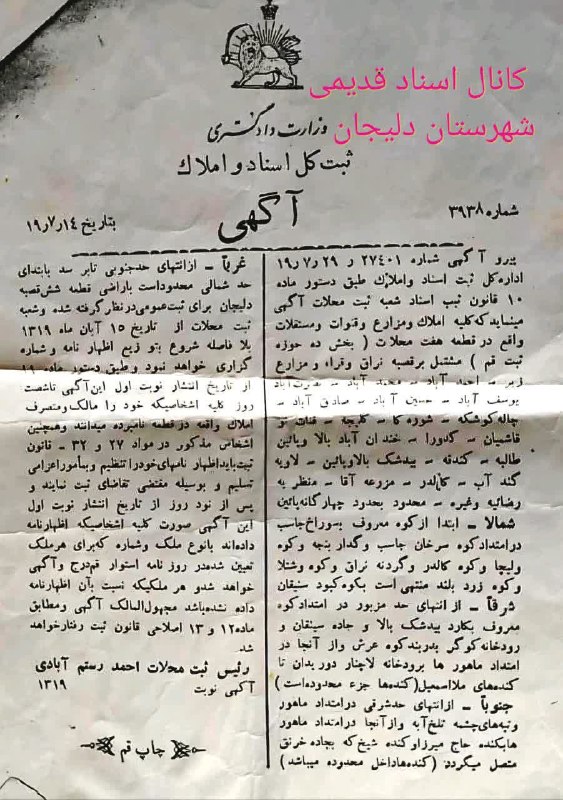 کانال اسناد قدیمی
شهرستان دلیجان
وزارت دادگستری
ثبت کل اسناد و املاک
شماره ۳۹۳۸
آگهی
بتاریخ ۱۹٫۷٫۱۴
پیرو آگهی شماره ۲۷۴۰۱ ر ۲۹ ر ۷ ر ۱۹
اداره کل ثبت اسناد واملاک طبق دستور ماده
۱۰ قانون ثبت اسناد شعبه ثبت محلات آگهی
مینماید که کلیه املاک و مزارع وقنوات ومستغلات
واقع در قطعه هفت محلات ( بخش ده حوزه
ثبت قم ) مشتمل برقصبه نراق وقراء و مزارع
زیر - احمد آباد - محمد آباد -
یوسف آباد - حسین آباد - صادق آباد -
چاله گوشکه - شوره کا - کلیجا - قنات نو
قاشیان - گدورا - خندان آباد بالا وپائین
طالبه - کندقه - بیدشک بالاوپایین - لاویه
گند آب - کالدر - مزرعه آقا - منظر یه
رضائیه وغیره - محدود بحدود چهارگانه پائین
شمالا - ابتدا از کوه معروف بسوراخ جاسب
درامتداد کوه سرخان جاسب وگدار بنجه وکوه
ولیچا وکوه کالدر وگردنه نراق وکوه وشتلا
وکوه زرد بلند منتهی است بکوه کبود سنیقان
شرقاً - از انتهای حد مزبور در امتداد کوه
معروف بکارد بیدشک بالا و جاده سینقان و
رودخانه کوگر بدربند کوه عرش واز آنجا در
امتداد ماهور ها برودخانه لاچنار دور بدان تا
کنده‌های ملااسمعیل (کنده‌ها جزء محدوده است)
جنوباً - از انتهای حدشرقی درامتداد ماهور
وتپه‌های چشمه تلخ آبه واز آنجا درامتداد ماهور
هابکنده حاج میرزاوکنده شیخ که بجاده خرنق
متصل میگردد (کنده‌هاداخل محدوده میباشد)
غرباً - ازانتهای حدجنوبی تابر سد بابتدای
حد شمالی محدوداست باراضی قطعه شش قصبه
دلیجان برای ثبت عمومی درنظر گرفته شده وشعبه
ثبت محلات از تاریخ ۱۵ آبان ماه ۱۳۱۹
بلا فاصله شروع بتو زیع اظهار نامه و شماره
گزاری خواهد نمود وطبق دستور ماده
از تاریخ انتشار نوبت اول این آگهی تاشصت
روز کلیه اشخاصیکه خود را مالک ومتصرف
املاک واقعه در قطعه نامبرده میدانند وهمچنین
اشخاص مذکور در مواد ۲۷ و ۳۲ - قانون
ثبت باید اظهار نامهای خودرا تنظیم و بمأمور اعزامی
تسلیم و بوسیله مقتضی تقاضای ثبت نمایند و
پس از نود روز از تاریخ انتشار نوبت اول
این آگهی صورت کلیه اشخاصیکه اظهارنامه
داده‌اند بانوع ملک وشماره که برای هرملک
تعیین شده در روز نامه استوار قم درج وآگهی
خواهد شدو هر ملکیکه نسبت بآن اظهارنامه
داده نشده باشد مجهول المالک آگهی ومطابق
ماده ۱۲ و ۱۳ اصلاحی قانون ثبت رفتارخواهد
شد
رئیس ثبت محلات احمد رستم آبادی
آگهی نوبت ۱۳۱۹
چاپ قم